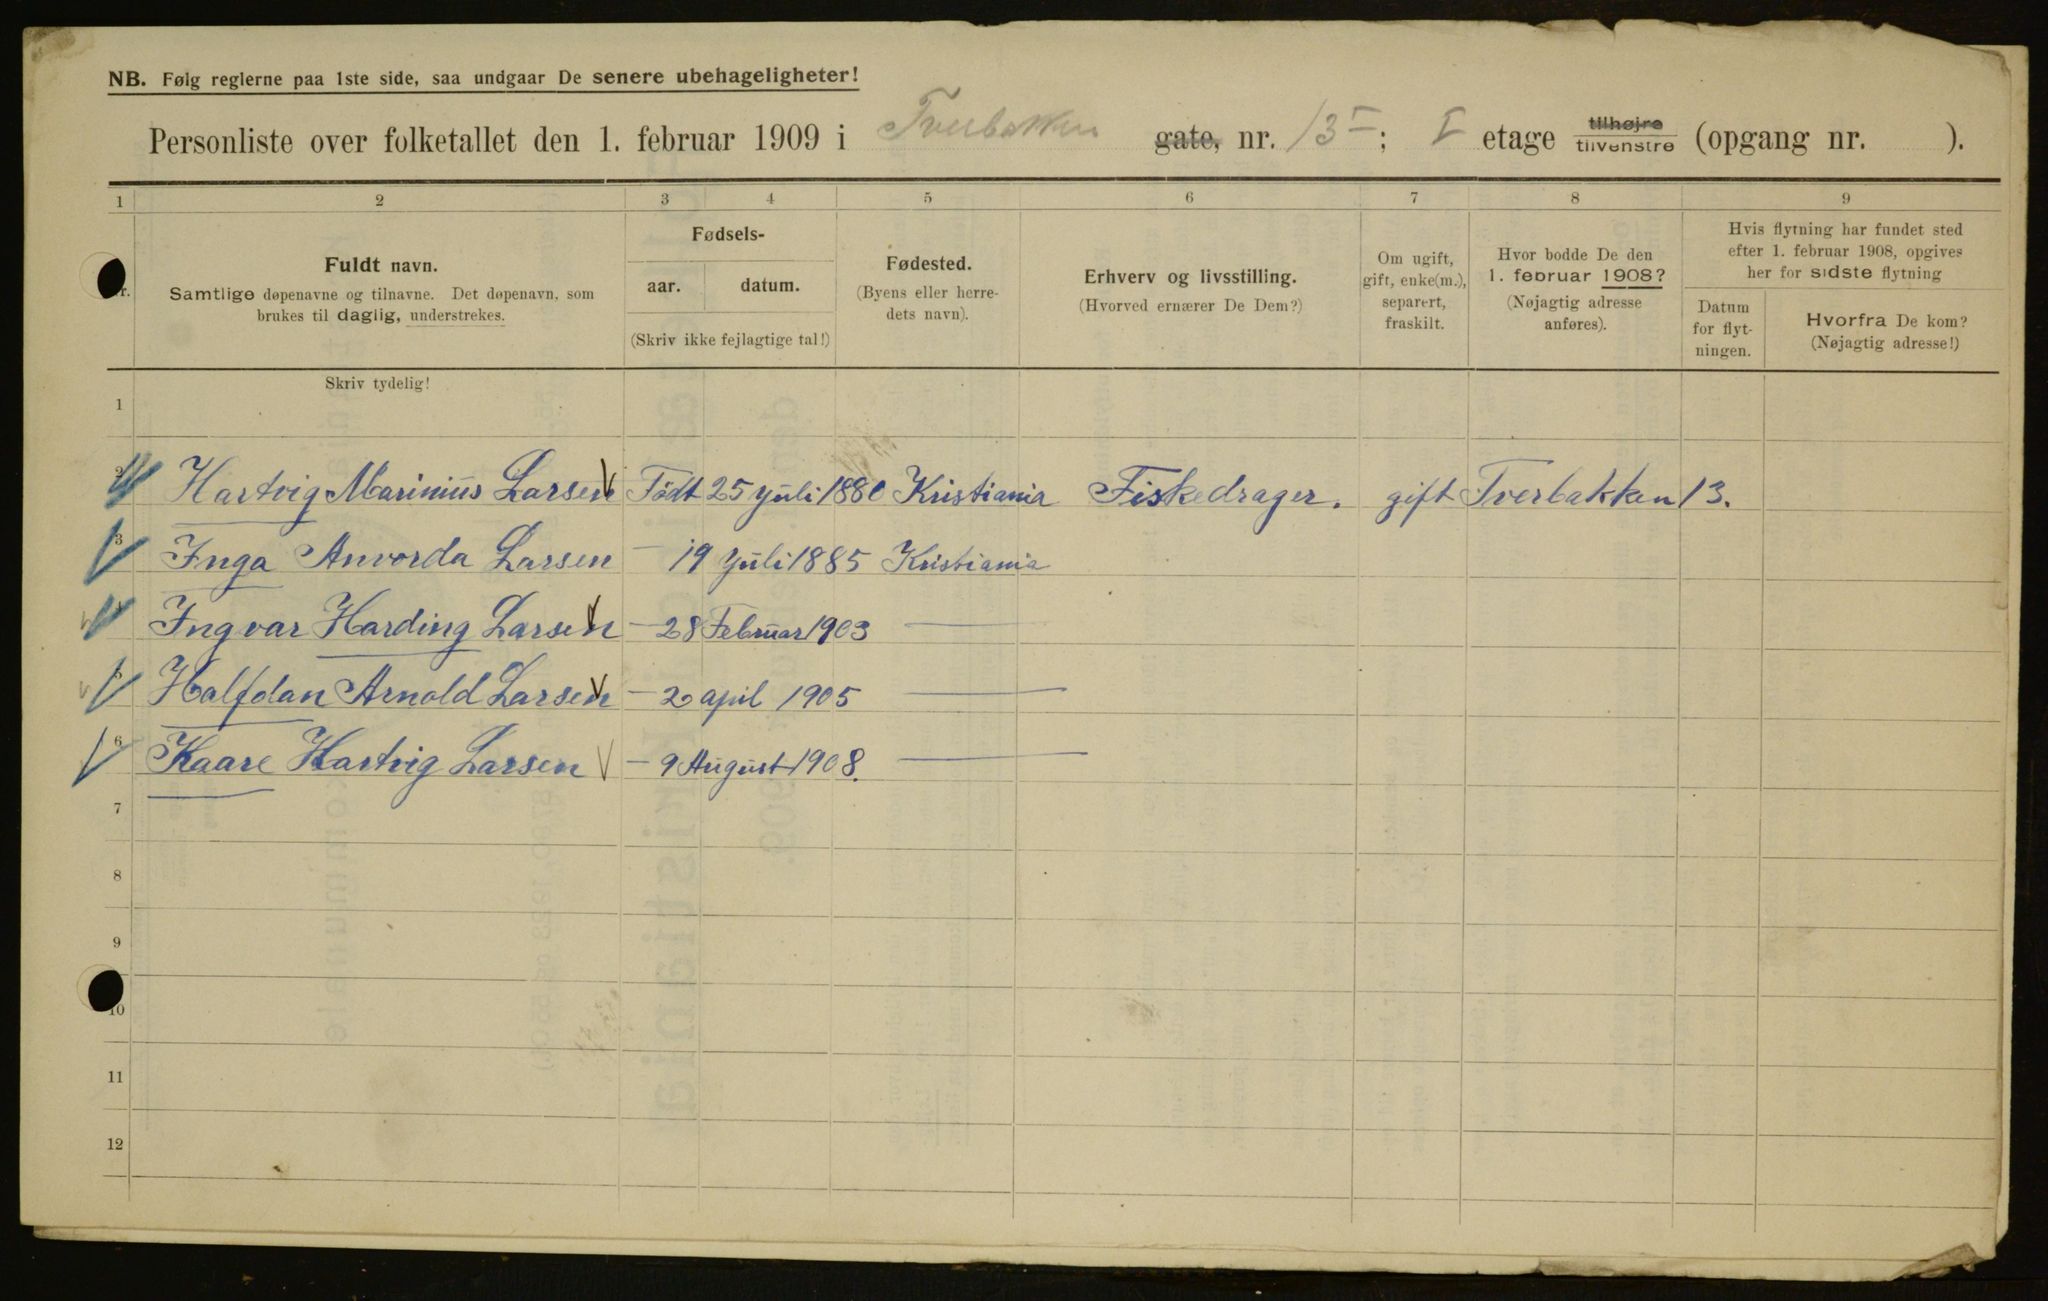 NB. Følg reglerne paa 1ste side, saa undgaar De senere ubehageligheter!
Personliste over folketallet den 1. februar 1909 i Tverbakken gate, nr. 13 I; I etage tilhøjre tilvenstre (opgang nr. ).
1 2 3 4 5 6 7 8 9
Fuldt navn.
Samtlige døpenavne og tilnavne. Det døpenavn, som
brukes til daglig, understrekes.
Skriv tydelig!
Fødsels-
aar. datum.
(Skriv ikke fejlagtige tal!)
Fødested.
(Byens eller herre-
dets navn).
Erhverv og livsstilling.
(Hvorved ernærer De Dem?)
Om ugift,
gift, enke(m.),
separert,
fraskilt.
Hvor bodde De den
1. februar 1908?
(Nøjagtig adresse
anføres).
Hvis flytning har fundet sted
efter 1. februar 1908, opgives
her for sidste flytning
Datum
for flyt-
ningen.
Hvorfra De kom?
(Nøjagtig adresse!)
1
2 Hartvig Marinius Larsen Födt 25 yuli 1880 Kristiania Fiskedrager. gift Tverbakken 13.
3 Inga Anvorda Larsen — 19 yuli 1885 Kristiania
Ingvar Harding Larsen — 28 Februar 1903 —
5 Halfdan Arnold Larsen — 2 april 1905 —
6 Kaare Hartvig Larsen — 9 August 1908. —
7
8
9
10
11
12